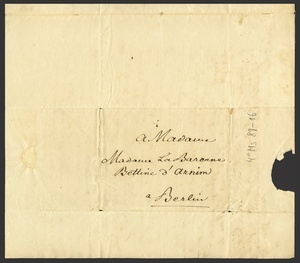 à Madame
Madame La Baronne
Bettine d'Arnim
a Berlin
4° Ms 89-16